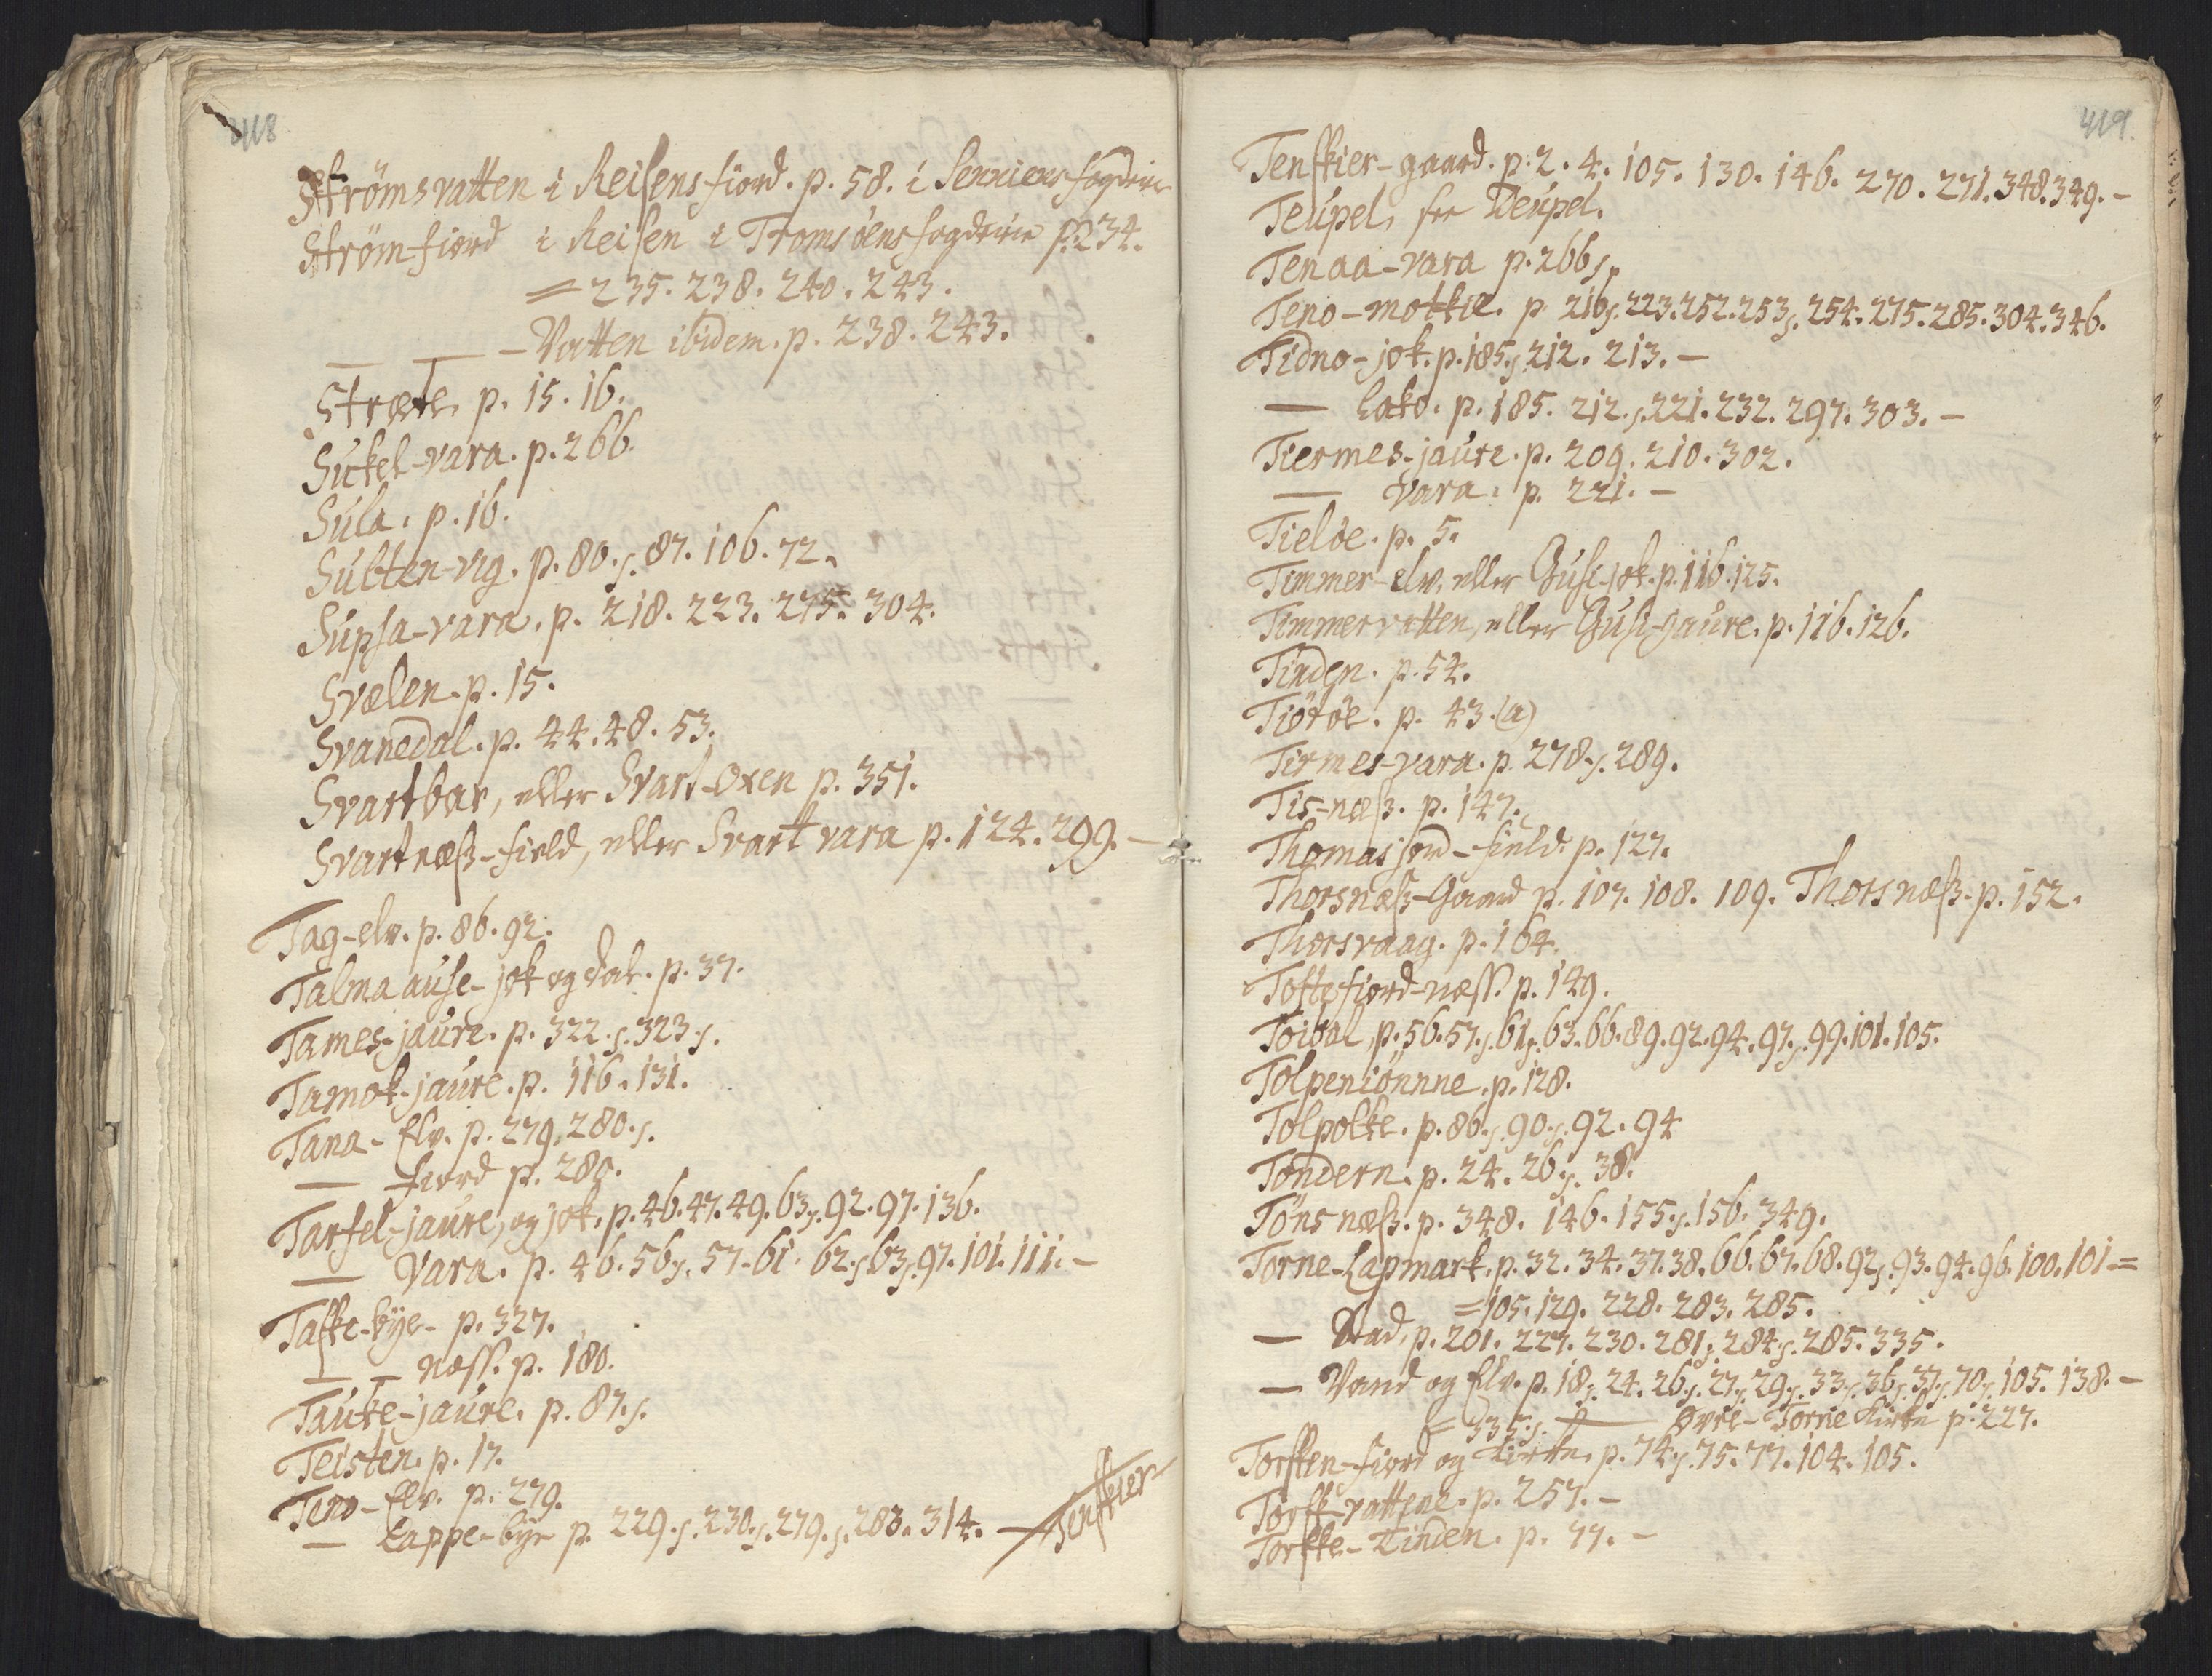 418
Strömsvatten i Reisens fiord. p. 58. i Senniens fogderie
Strömfiord i Reisen i Tromsöens fogderie p. 234.
= 235. 238. 240. 243.
— — - Vatten ibidem. p. 238. 243.
Stræte. p. 15. 16.
Suckel-vara. p. 266.
Sula. p. 16.
Sulten-vig. p. 80. s. 87. 106. 72.
Supsa-vara. p. 218. 223. 275. 304.
Svælen. p. 15.
Svanedal. p. 44. 48. 53.
Svartbar, eller Svart-Oxen p. 351.
Svartnæss-field, eller Svart vara p. 124. 299. -
Tag-elv. p. 86. 92.
Talma ause-jok og dal. p. 37.
Tames-jaure. p. 322. s. 323. s.
Tamok-jaure. p. 116. 131.
Tana-Elv. p. 279. 280. s.
— fiord p. 280.
Tarfel-jaure, og jok. p. 46. 47. 49. 63. s. 92. 97. 136.
— Vara. p. 46. 56. s. 57. 61. 62. s. 63. s. 97. 101. 111. -
Taske-bye- p. 327.
— — næss. p. 180.
Tauke-jaure. p. 87. s.
Teisten. p. 17.
Teno-Elv. p. 279.
— Lappe-bye p. 229. s. 230. s. 279. s. 283. 314. - Tenskier
419.
Tenskier-gaard. p. 2. 4. 105. 130. 146. 270. 271. 348. 349. -
Teupel, see Deupel.
Tenaa-vara p. 266. s.
Teno-motkie. p 216. s. 223. 252. 253. s. 254. 275. 285. 304. 346.
Tidno-jok. p. 185. s. 212. 213. -
— Lako. p. 185. 212. s. 221. 232. 297. 303. -
Tiermes-jaure. p. 209. 210. 302.
— vara. p. 221. -
Tieldе. p. 5.
Timmer-elv, eller Gusi-jok. p. 116. 125.
Timmervatten, eller Gusi-jaure. p. 116. 126.
Tinden. p. 54.
Tiötöe. p. 43. (a)
Tirmes-vara. p. 278. s. 289.
Tis-næss. p. 147.
Thomasjord-field. p. 127.
Thorsnæss-Gaard p. 107. 108. 109. Thorsnæss. p. 152.
Thorsvaag. p. 164.
Toftefiord-næss. p. 149.
Toibal, p. 56. 57. s. 61. s. 63. 66. 89. 92. 94. 97. s. 99. 101. 105.
Tolpeniönnne. p. 128.
Tolpolke. p. 86. s. 90. s. 92. 94
Tondern. p. 24. 26. s. 38.
Tönsnæss. p. 348. 146. 155. s. 156. 349.
Torne-Lapmark. p. 32. 34. 37. 38. 66. 67. 68. 92. s. 93. 94. 96. 100. 101 =
= 105. 129. 228. 283. 285.
— Stad, p. 201. 227. 230. 281. s. 284. s. 285. 335.
— Vand og Elv. p. 18. s. 24. 26. s. 27. s. 29. s. 33. s. 36. s. 37. s. 70. s. 105. 138. -
= 335. s. — Øvre-Torne Kirke p. 227.
Torsken-fiord og Kirke p. 74. s. 75. 77. 104. 105.
Torsk-vattene. p. 257. -
Torske-Tinden. p. 77. -